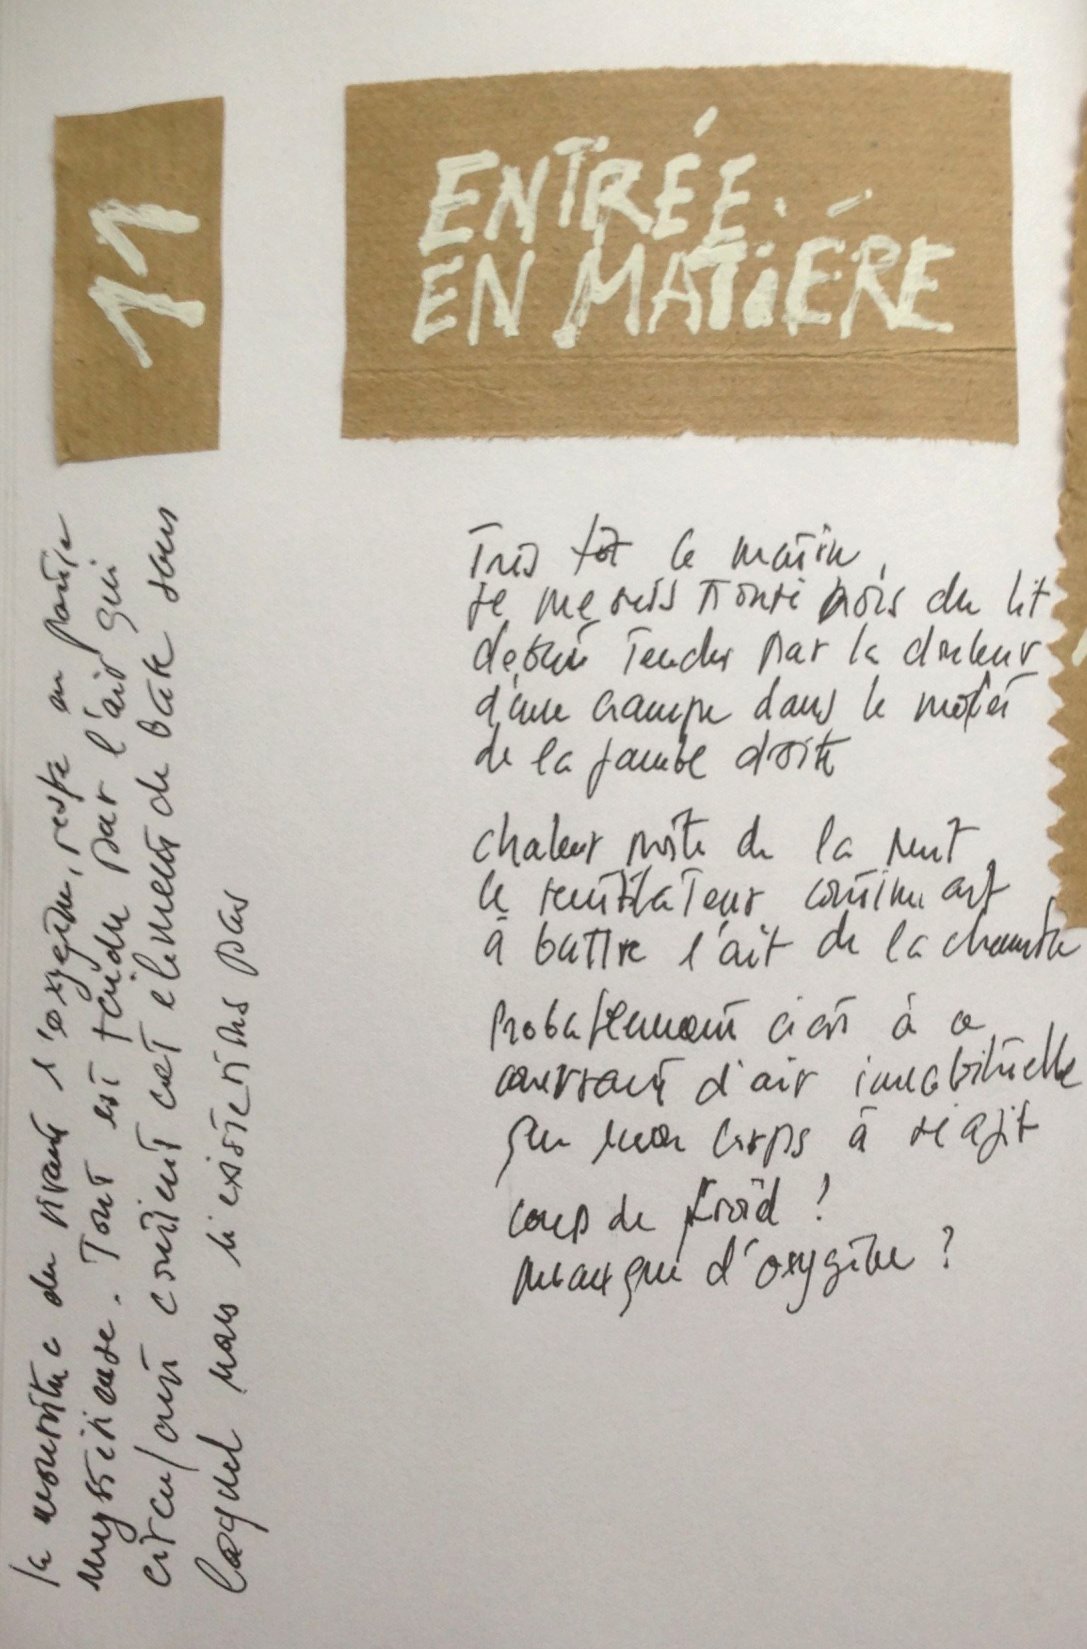 11
ENTRÉE.
EN MATIÉRE
Très tôt le matin,
je me suis trouvé hors du lit
debout tendu par la douleur
d'une crampe dans le mollet
de la jambe droite
chaleur moite de la nuit
le ventilateur continuait
à battre l'air de la chambre
Probablement c'est à ce
courrant d'air innabituelle
que mon corps à réagit
coup de froid !
manque d'oxygène ?
la nourriture du vivant l'oxygène, reste en partie
mystérieuse. Tout est tendu par l'air qui
circulant contient cet element de base sans
laquel nous n'existerions pas